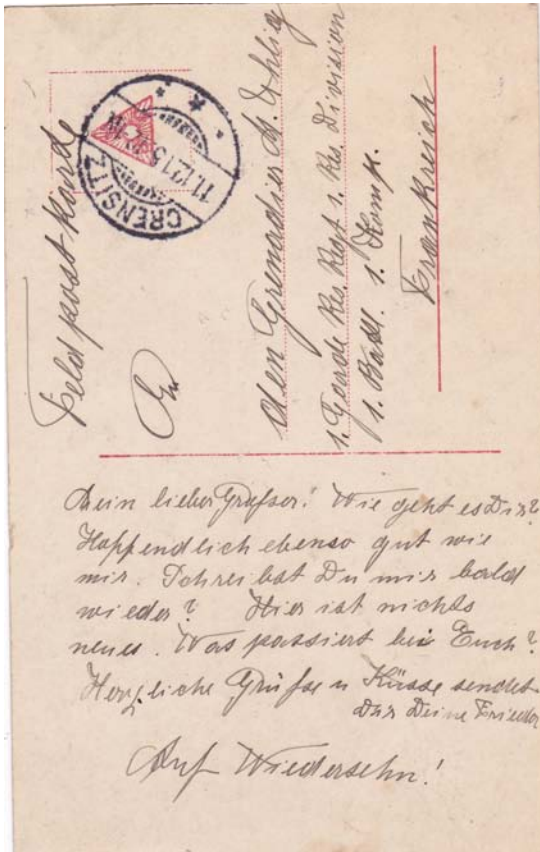 Feldpostkarte
CRENSITZ
11.12.15
An
den Grenadier M. Ehlig
1. Garde Res. Regt 1. Res. Division
1. Batl. 1. Komp.
Frankreich
Mein lieber Großer! Wie geht es Dir?
Hoffendlich ebenso gut wie
mir. Schreibst Du mir bald
wieder? Hier ist nichts
neues. Was passiert bei Euch?
Herzliche Grüße u Küsse sendet
Dir Deine Frieda
Auf Wiedersehn!